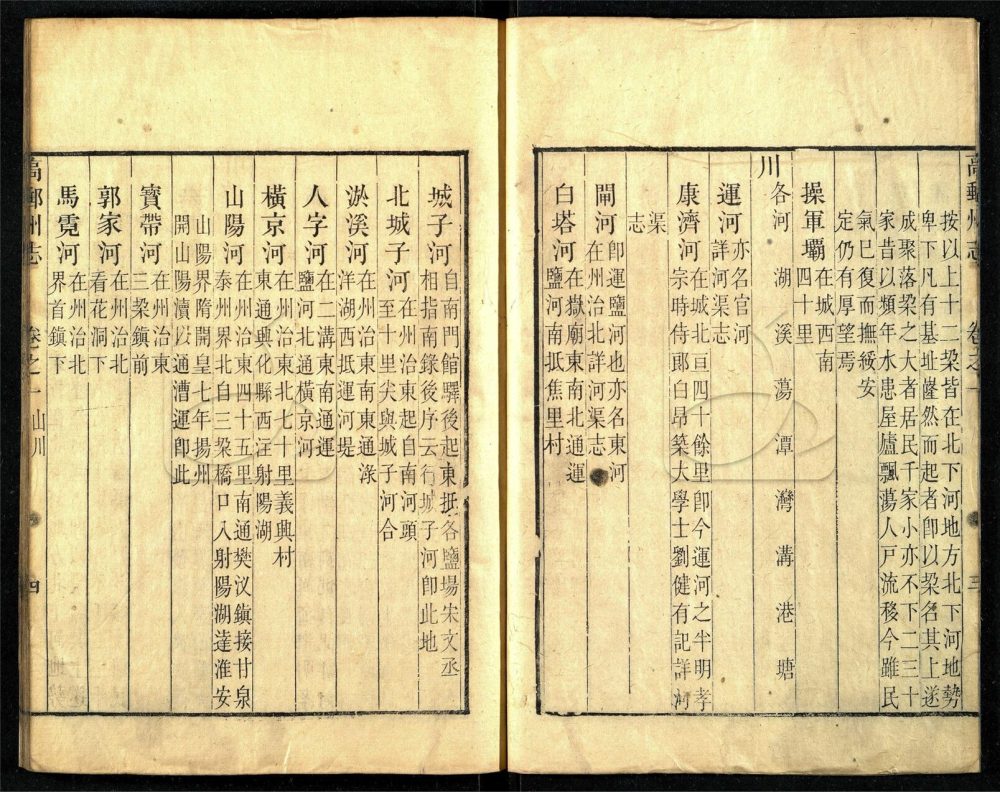 高郵州志 卷之一 三
按以上十二垜皆在北下河地方北下河地勢
卑下凡有基址窿然而起者卽以垜名其上遂
成聚落垜之大者居民千家小亦不下二三十
家昔以頻年水患屋廬飄蕩人戶流移今雖民
氣已復而撫綏安
定仍有厚望焉
操軍壩 在城西南
四十里
川 各河 湖 溪 蕩 潭 灣 溝 港 塘
運河 亦名官河
詳河渠志
康濟河 在城北亘四十餘里卽今運河之半明孝
宗時侍郎白昂築大學士劉健有記詳河
渠
志
閘河 卽運鹽河也亦名東河
在州治北詳河渠志
白塔河 在嶽廟東南北通運
鹽河南抵焦里村
城子河 自南門館驛後起東抵各鹽場宋文丞
相指南錄後序云行城子河卽此地
北城子河 在州治東起自南河頭
至十里尖與城子河合
淤溪河 在州治東南東通淥
洋湖西抵運河堤
人字河 在二溝東南通運
鹽河北通橫京河
橫京河 在州治東北七十里義興村
東通興化縣西汪射陽湖
山陽河 在州治東四十五里南通樊汊鎮接甘泉
泰州界北自三垜橋口入射陽湖達淮安
山陽界隋開皇七年揚州
開山陽瀆以通漕運卽此
寶帶河 在州治東
三垜鎮前
郭家河 在州治北
看花洞下
馬霓河 在州治北
界首鎮下
高郵州志 卷之一 山川 四